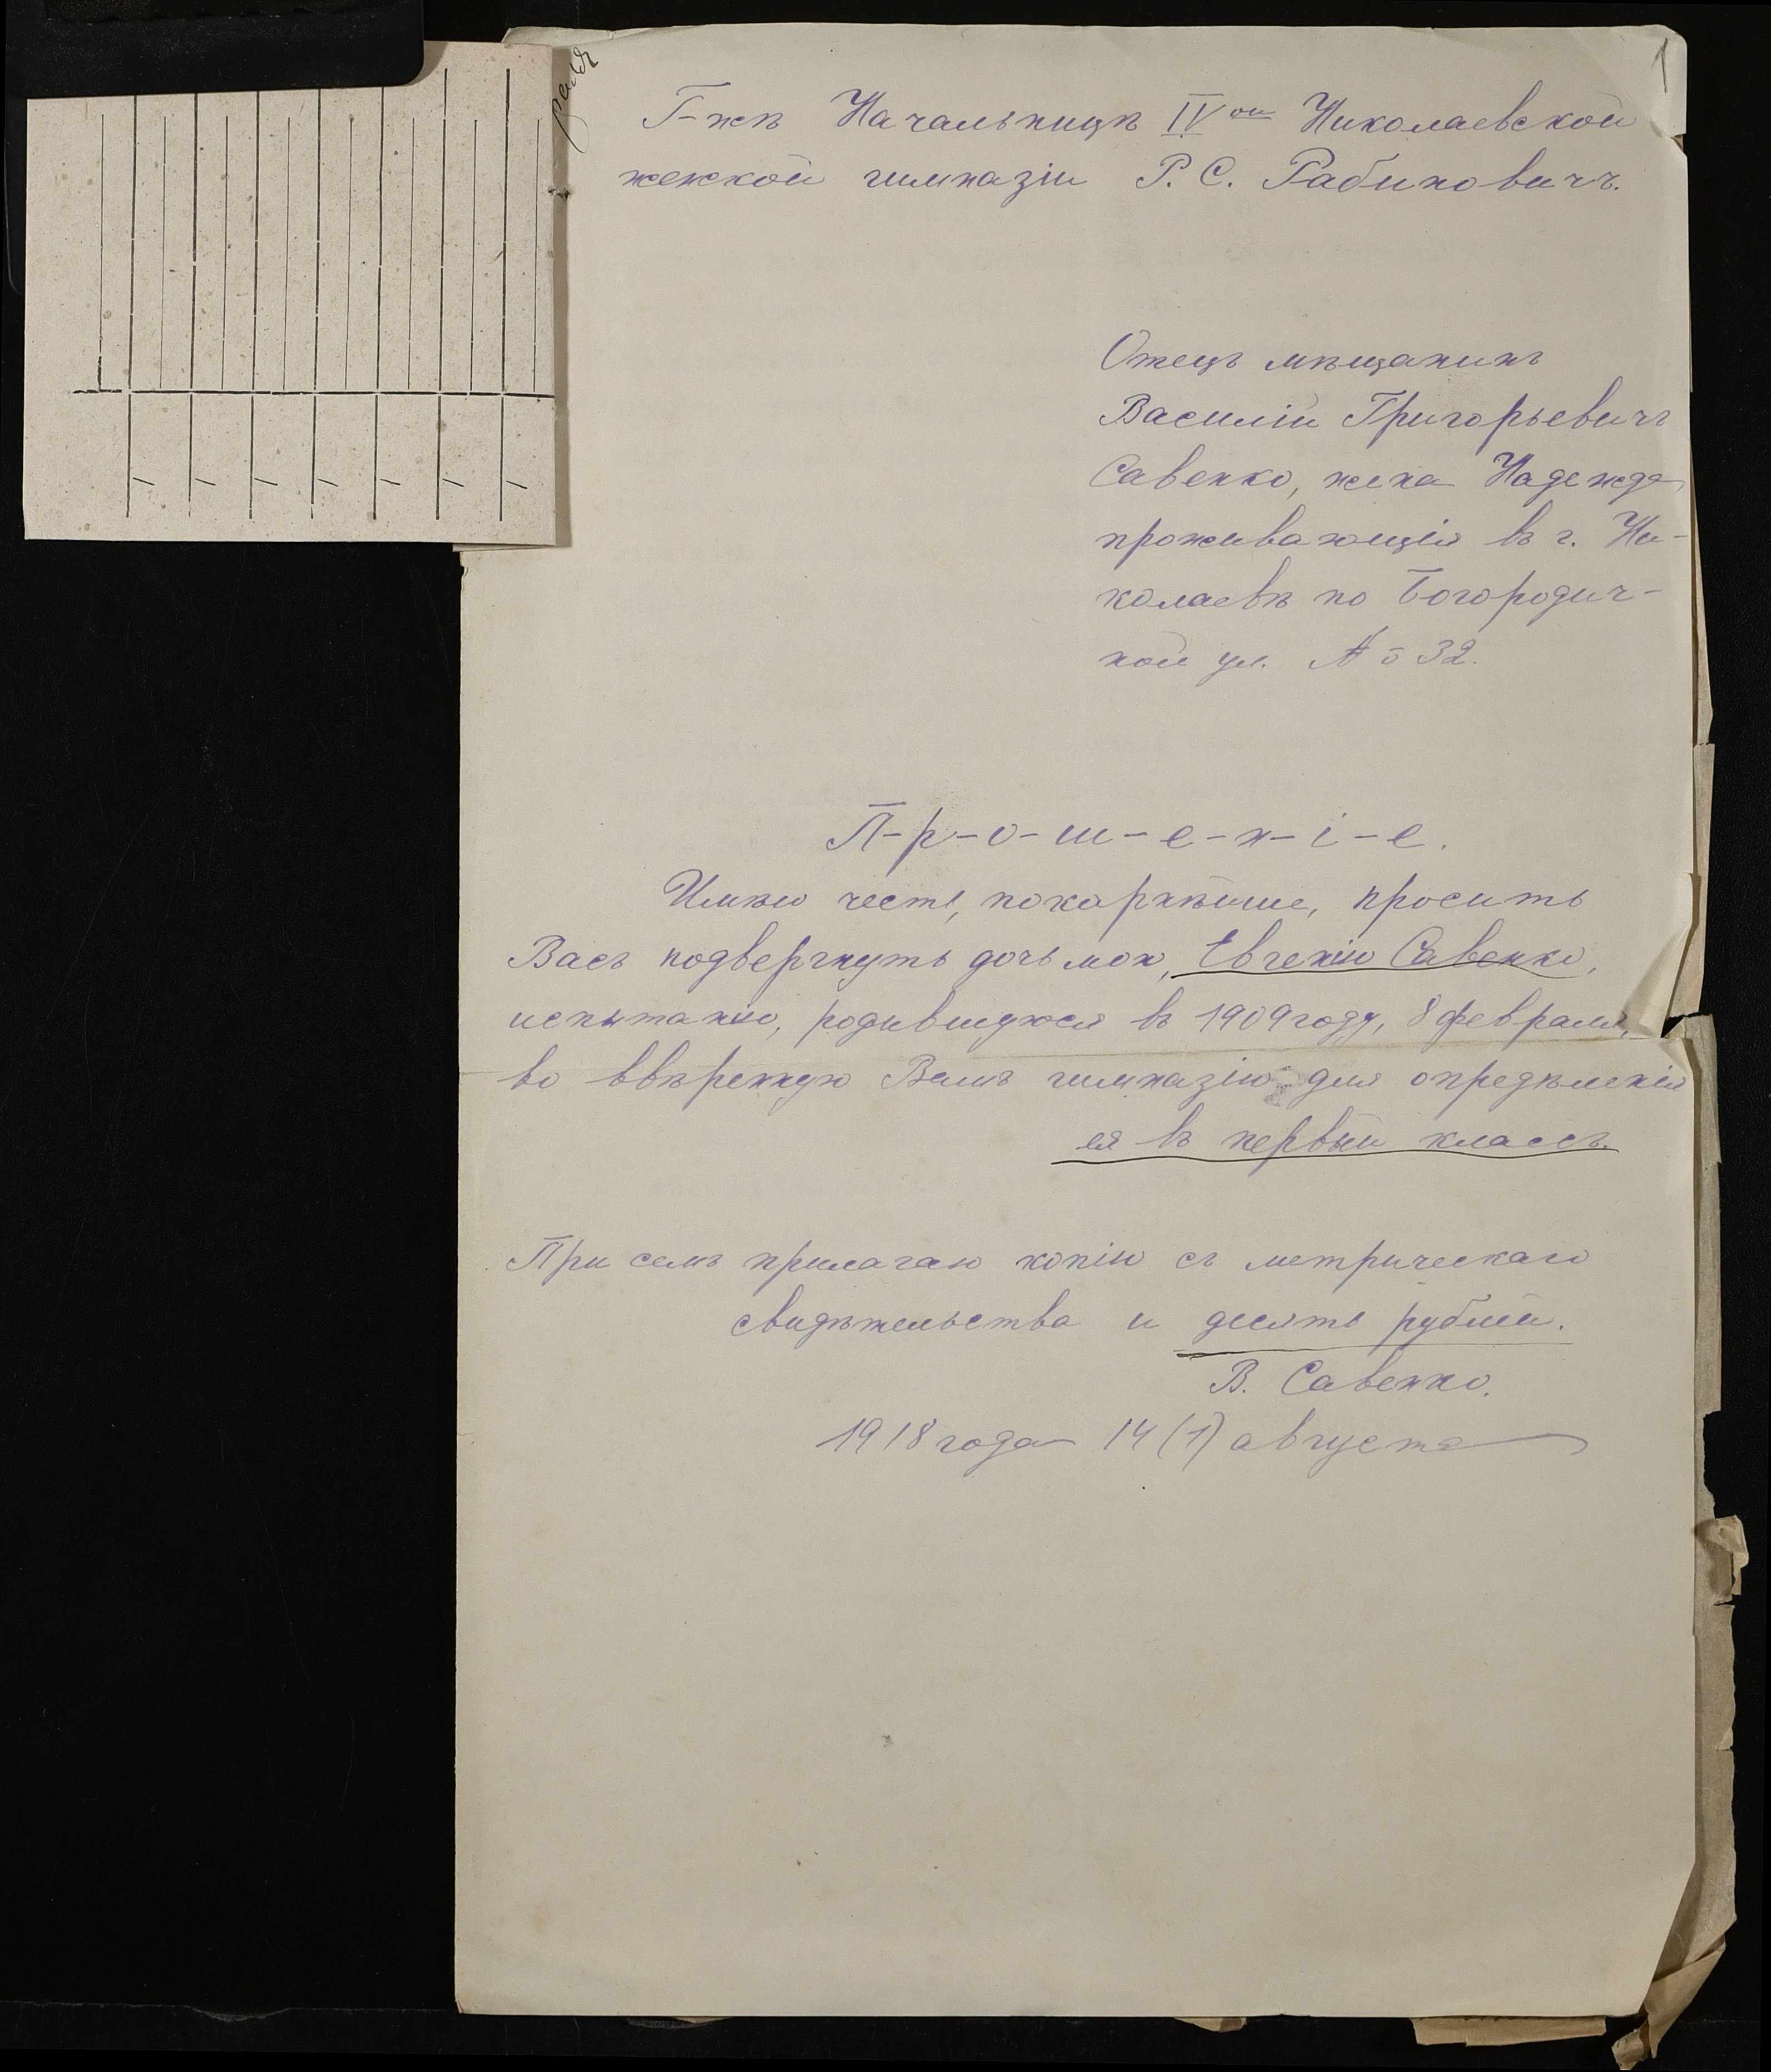 1
Г-жѣ Начальницѣ IVой Николаевской
женской гимназіи Р. С. Рабиновичъ.
Отецъ мѣщанинъ
Василій Григорьевичъ
Савенко, жена Надежда
проживающія въ г. Ни-
колаевѣ по Богородич-
ной ул. № 32.
П-р-о-ш-е-н-і-е.
Имѣю честь, покорнѣйше, просить
Васъ подвергнуть дочь мою, Евгенію Савенко,
испытанію, родившуюся въ 1909 году, 8 февраля,
во ввѣренную Вамъ гимназію для опредѣленія
ея въ первый классъ.
При семъ прилагаю копію съ метрическаго
свидѣтельства и десять рублей.
В. Савенко.
1918 года 14 (1) августа